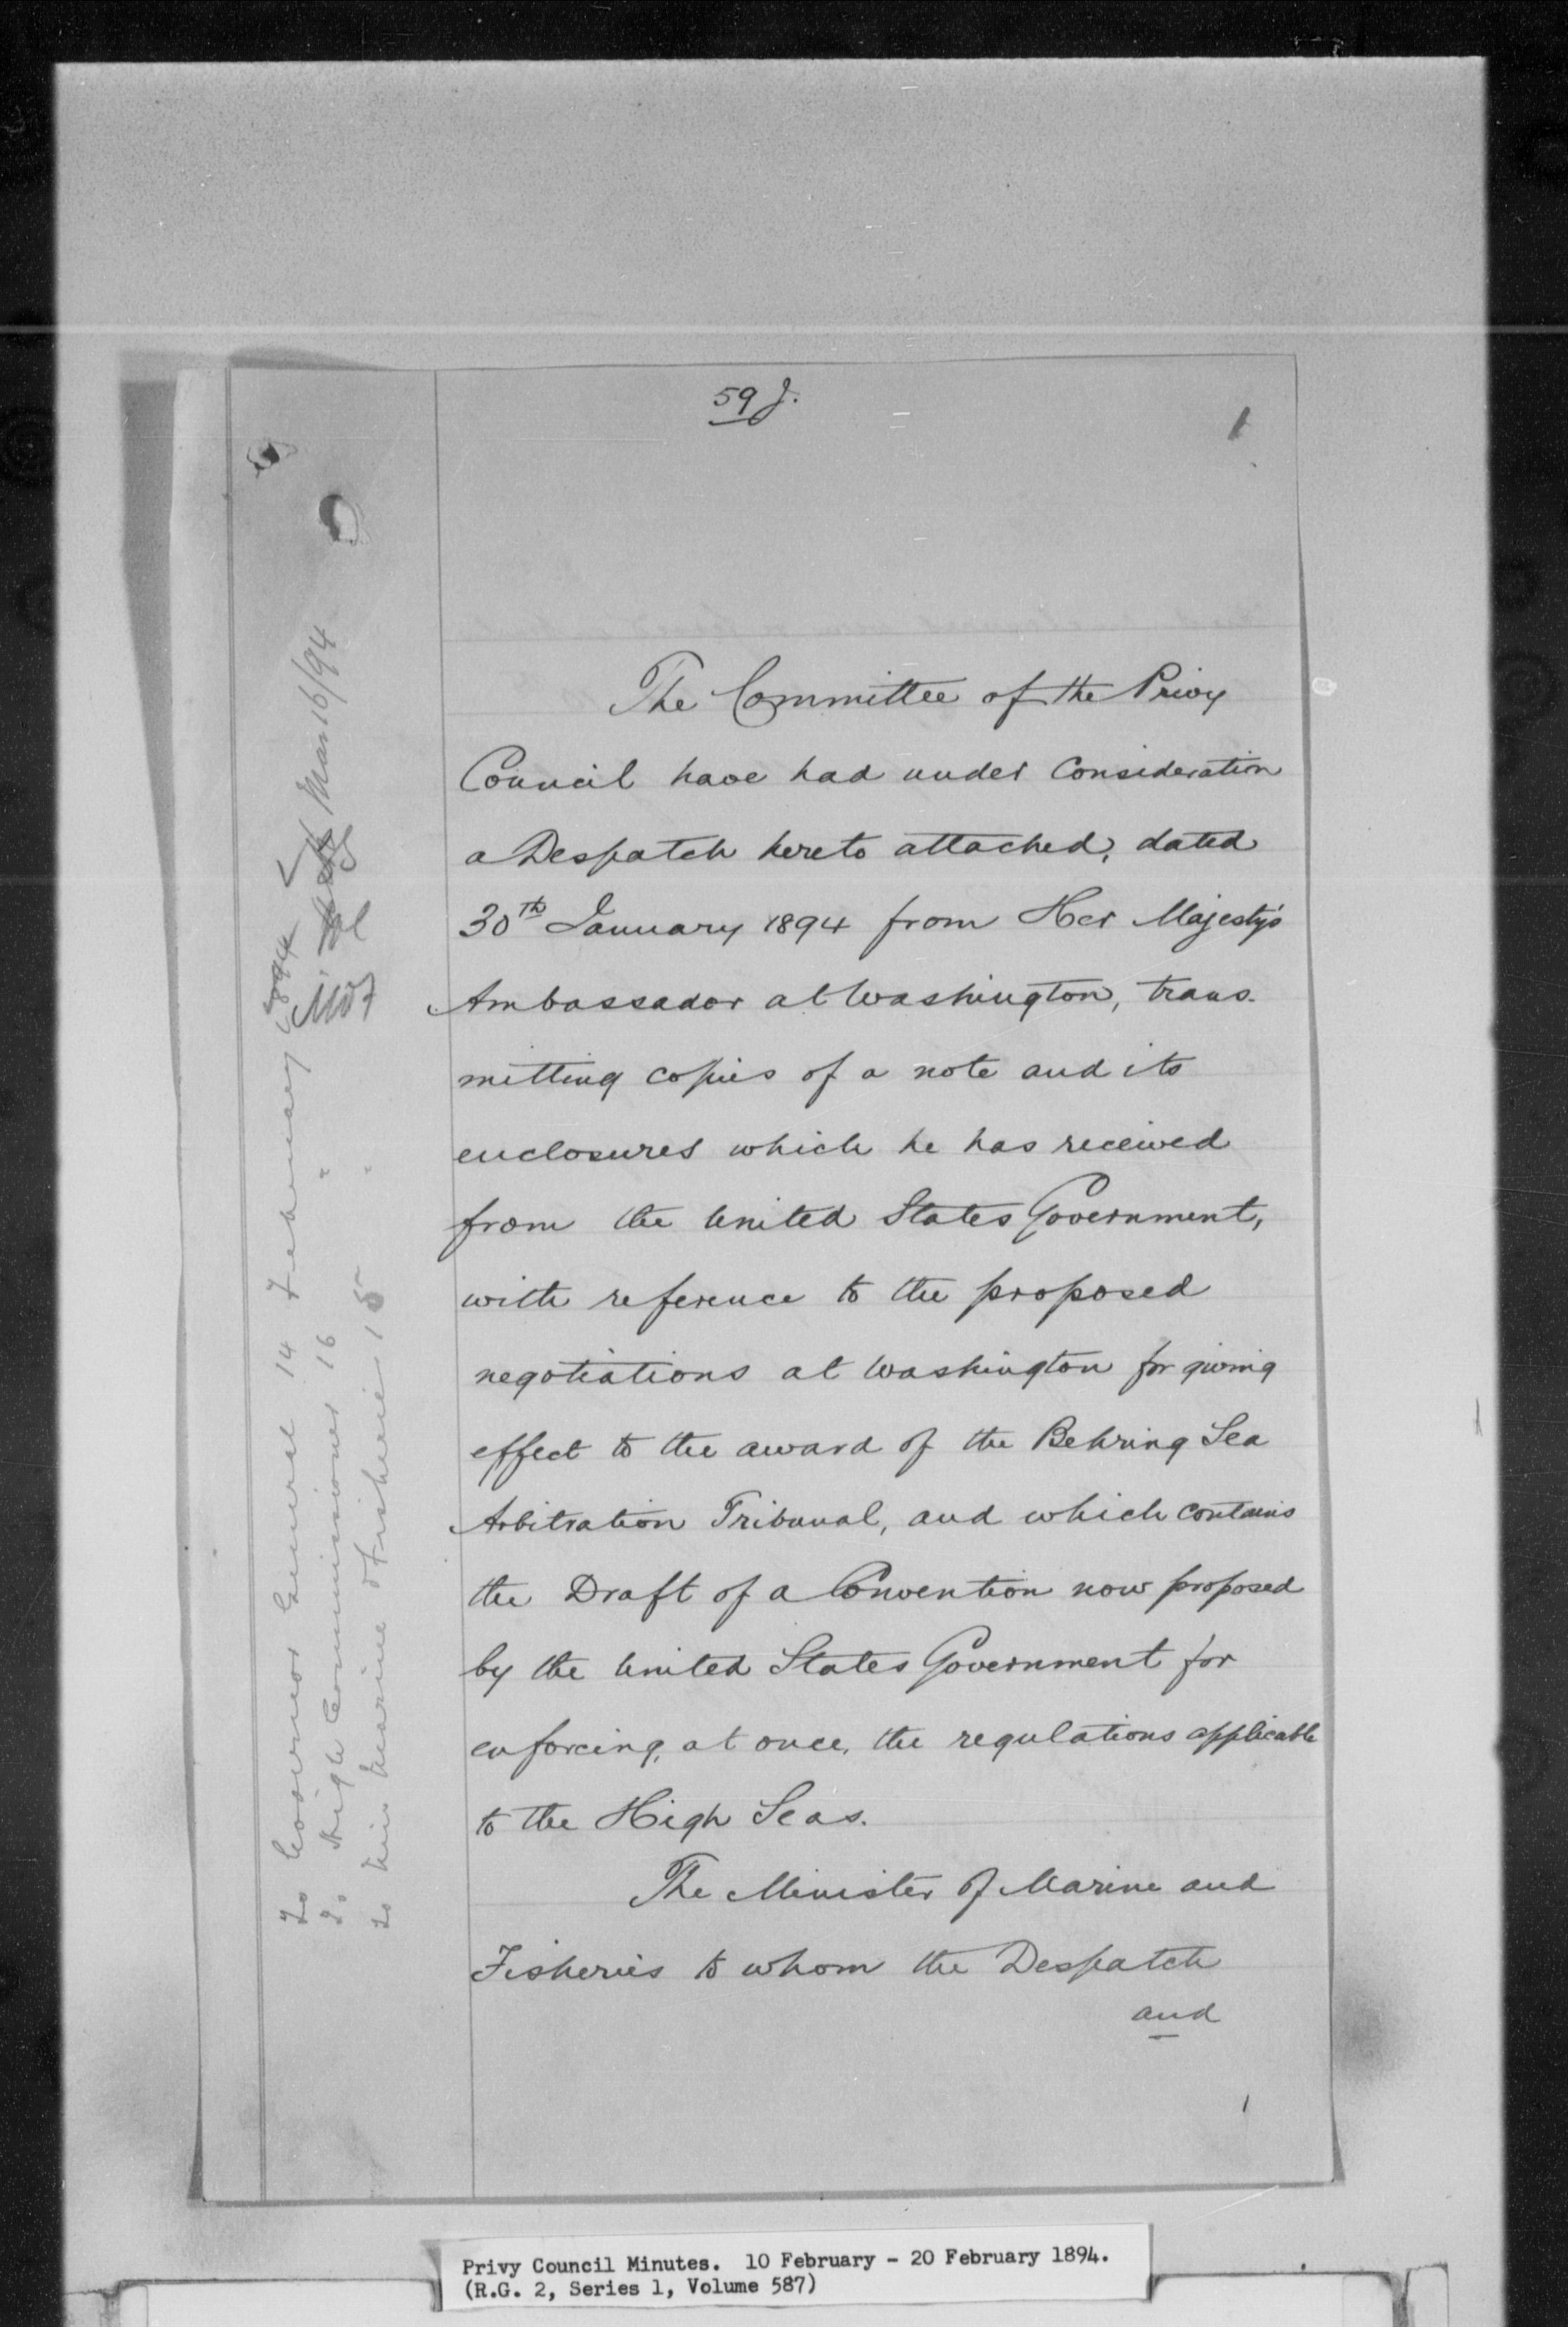 59 J.
1
The Committee of the Privy
Council have had under Consideration
a Despatch hereto attached, dated
30th January 1894 from Her Majesty's
Ambassador at Washington, trans-
mitting copies of a note and its
enclosures which he has received
from the United States Government,
with reference to the proposed
negotiations at Washington for giving
effect to the award of the Behring Sea
Arbitration Tribunal, and which contains
the Draft of a Convention now proposed
by the United States Government for
enforcing, at once, the regulations applicable
to the High Seas.
The Minister of Marine and
Fisheries to whom the Despatch
and
1
To Governor General 14 February 1894
To High Commissioner 16 "
To Min Marine & Fisheries 15 "
Mar 16/94
Privy Council Minutes. 10 February - 20 February 1894.
(R.G. 2, Series 1, Volume 587)